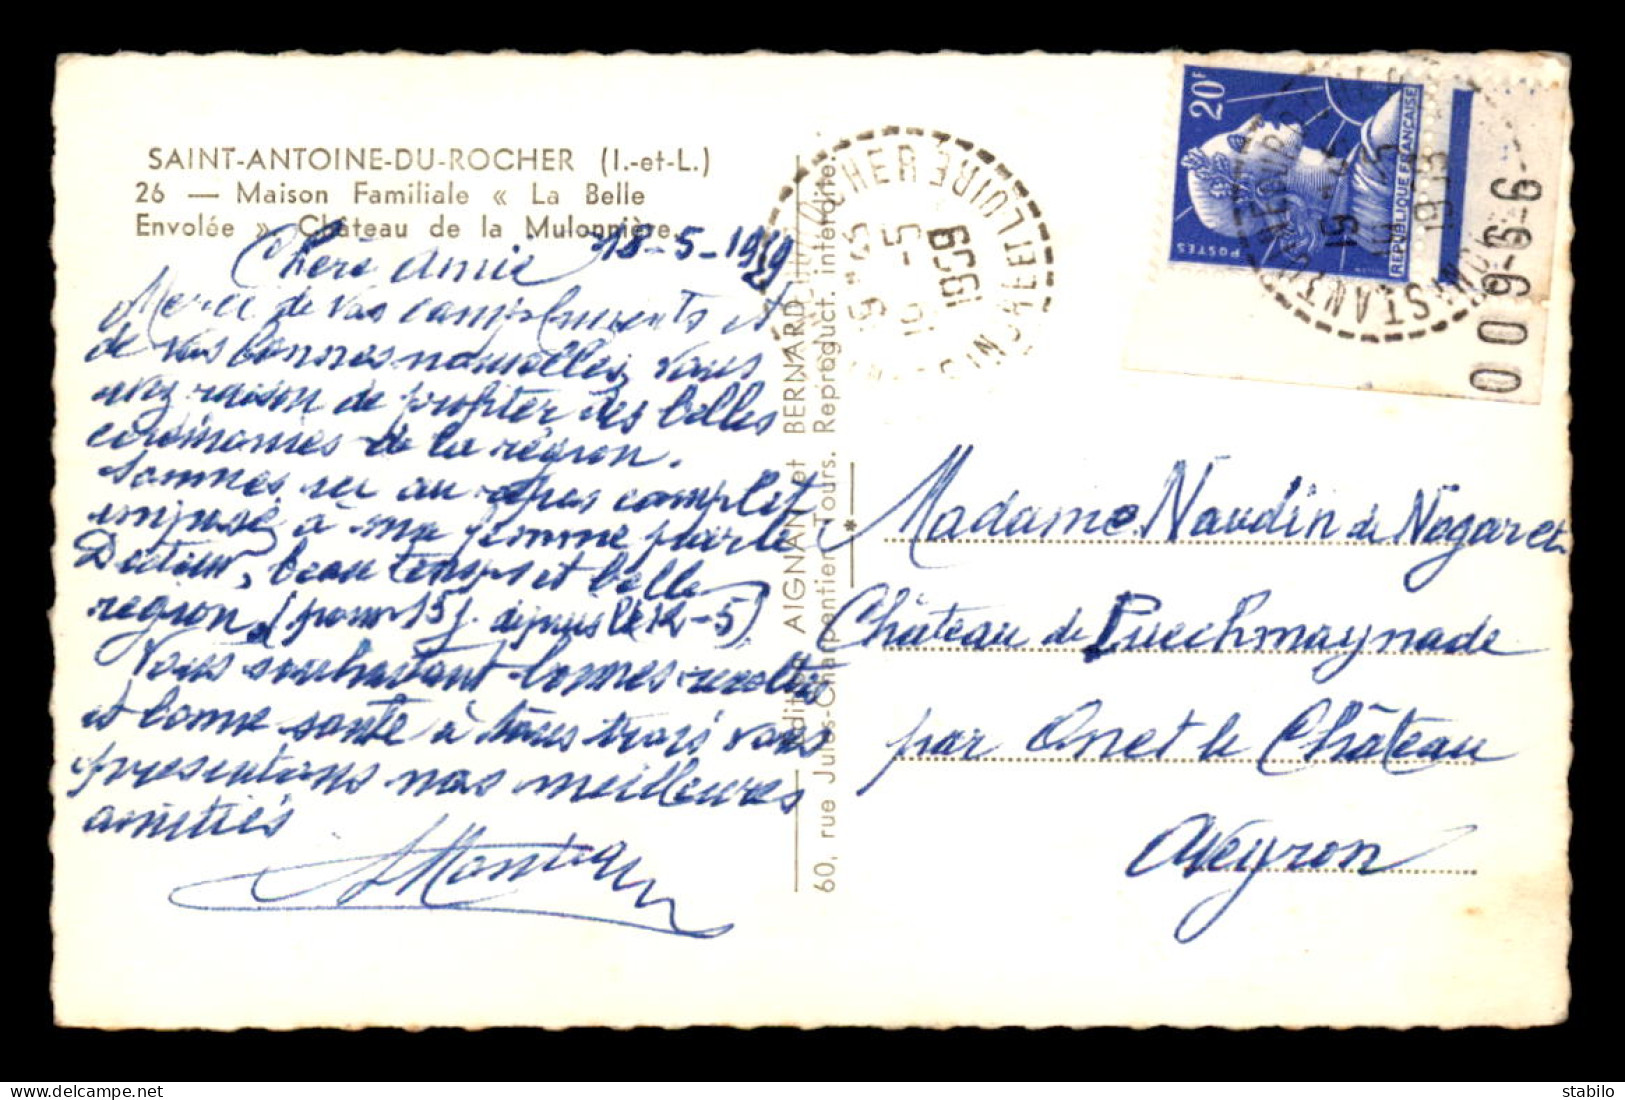 SAINT-ANTOINE-DU-ROCHER (I.-et-L.)
26 — Maison Familiale « La Belle
Envolée » Château de la Mulonnière.
18-5-1959
Chère Amie
Merci de vos compliments et
de vos bonnes nouvelles, vous
avez raison de profiter des belles
cérémonies de la région.
Sommes ici au repos complet
imposé à ma femme par le
Docteur, beau temps et belle
région, (pour 15 j. depuis le 12-5)
Vous souhaitant bonnes récoltes
et bonne santé à tous trois vous
présentons nos meilleures
amitiés
Editions AIGNAN et BERNARD
60, rue Jules-Charpentier Tours. Reproduct. interdite.
20F
POSTES
REPUBLIQUE FRANÇAISE
ROCHER
INDRE ET LOIRE
19 H 45
19 -5
1959
ST ANTOINE DU ROCHER
19 45
19 5
1959
009-6-6
Madame Naudin de Nogaret
Château de Puechmaynade
par Onet le Château
Aveyron
stabilo